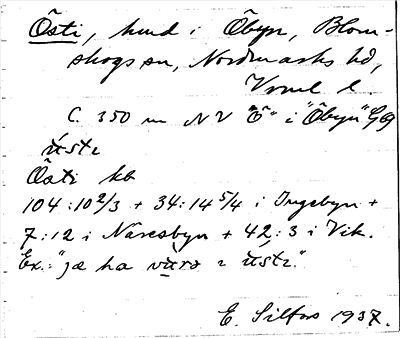 Östi, hund i Öbyn, Blom-
skogs sn, Nordmarks hd,
Vrml l.
C. 350 m NV "Ö" i "Öbyn" GG
ústɩ
Östi kb
104:10 2/3 + 34:14 5/4 i Ingebyn +
7:12 i Näresbyn + 42:3 i Vik.
Ex: "jæ ha vàrə ɩ ústɩ".
E. Silfors 1937.